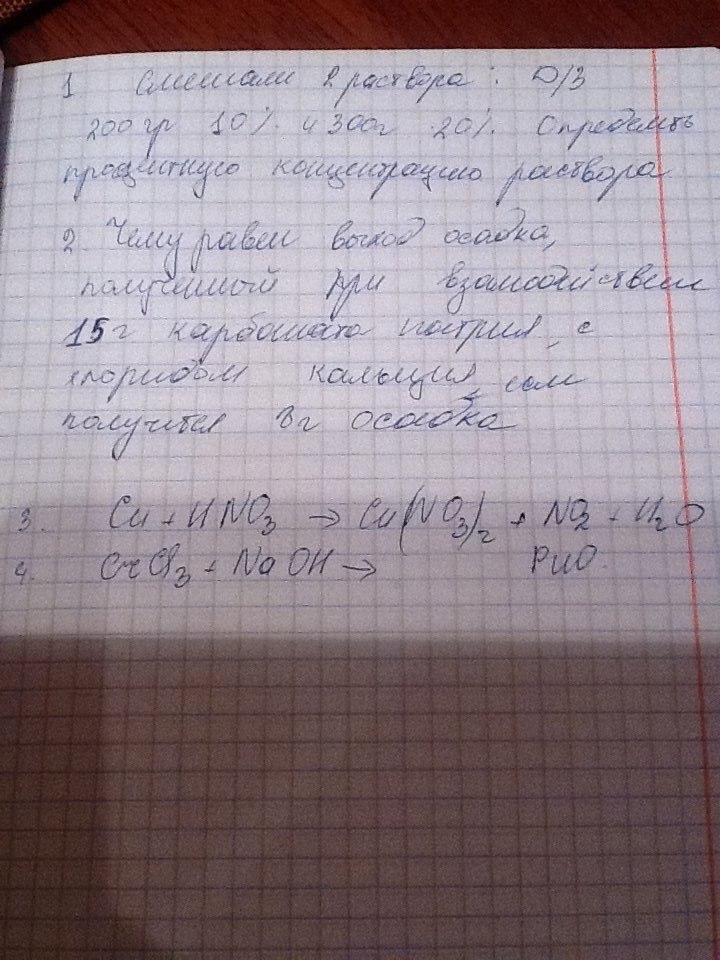 1 Смешали 2 раствора: D/З
200 гр 10% и 300г 20%. Определить
процентную концентрацию раствора
2 Чему равен выход осадка,
полученный при взамодействии
15 г карбоната натрия, с
хлоридом кальция, если
получится 8г осадка
3. Cu + HNO3 → Cu(NO3)2 + NO2 + H2O
4. CrCl3 + NaOH → РИО.